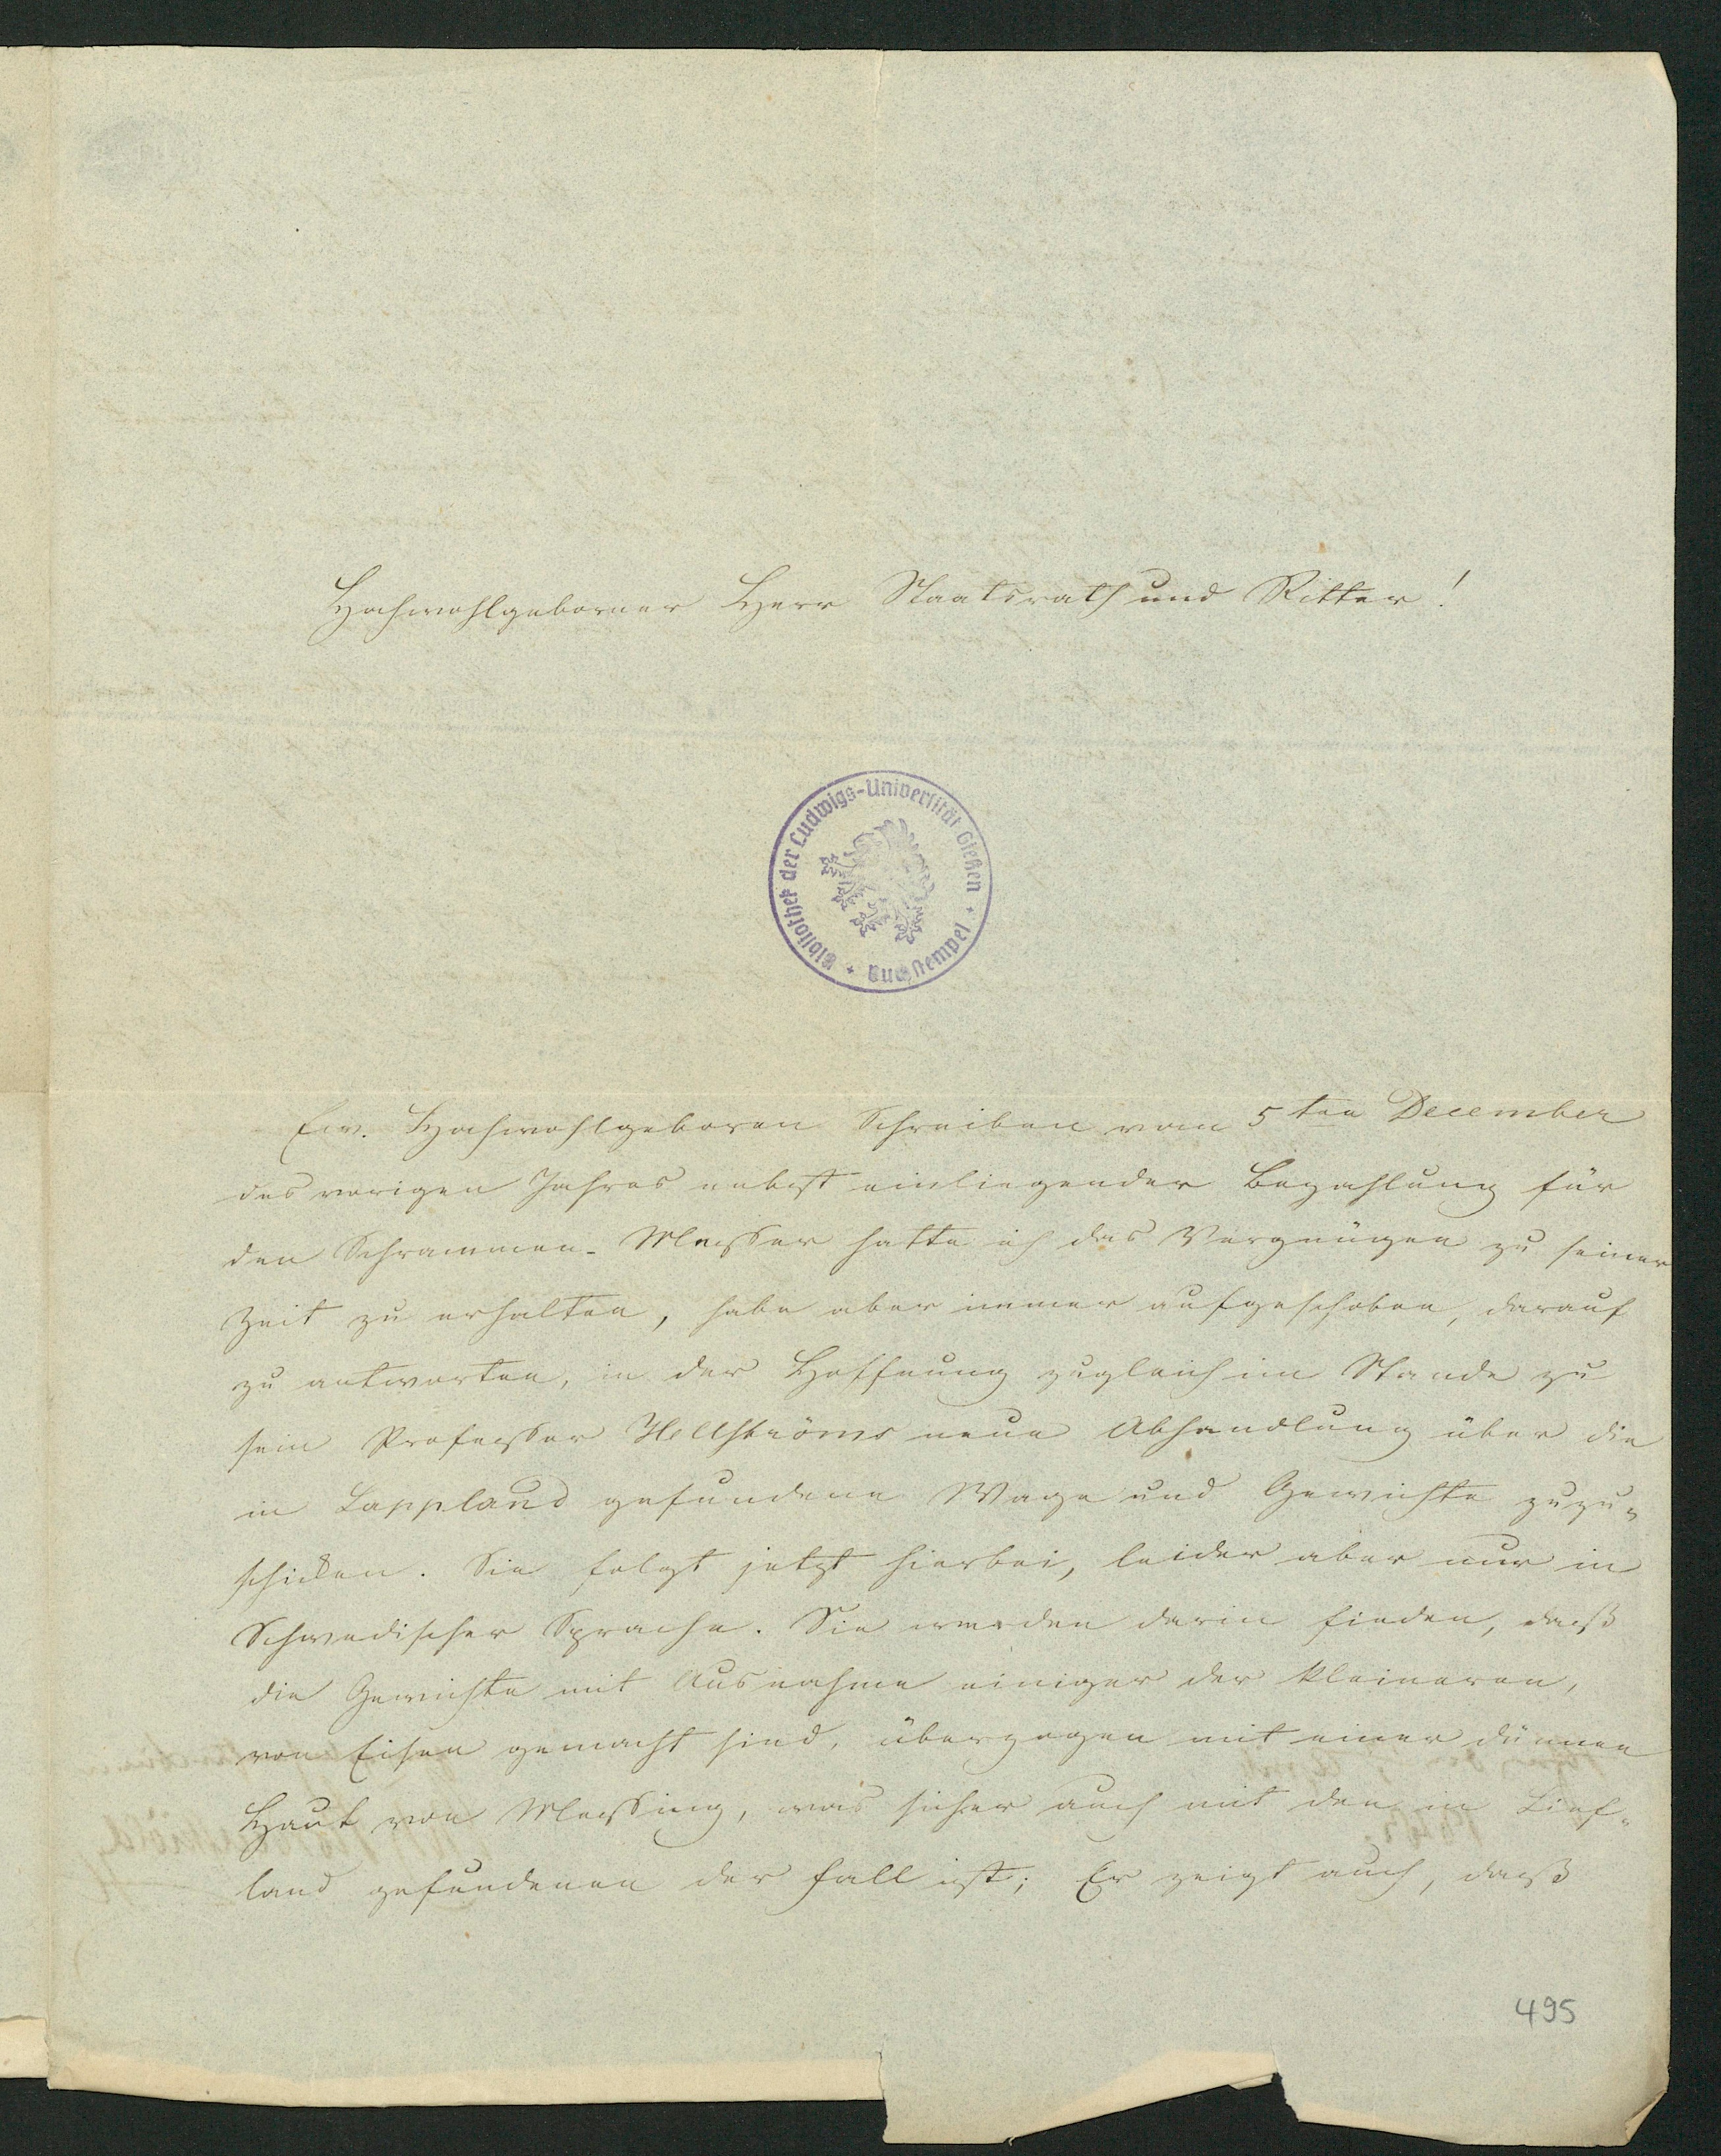 Hochwohlgeborner Herr Staatsrath und Ritter!
Bibliothek der Ludwigs-Universität Gießen
Buchstempel
Ew. Hochwohlgeboren Schreiben vom 5ten December
des vorigen Jahres nebst einliegender Bezahlung für
den Schrammen-Messer hatte ich das Vergnügen zu seiner
Zeit zu erhalten, habe aber immer aufgeschoben, darauf
zu antworten, in der Hoffnung zugleich im Stande zu
sein Professor Hellströms neue Abhandlung über die
in Lappland gefundene Wage und Gewichte zuzu-
schicken. Sie folgt jetzt hierbei, leider aber nur in
Schwedischer Sprache. Sie werden darin finden, daß
die Gewichte mit Ausnahme einiger der kleineren,
von Eisen gemacht sind, überzogen mit einer dünnen
Haut von Messing, was sicher auch mit den in Lief-
land gefundenen der Fall ist; Er zeigt auch, daß
495